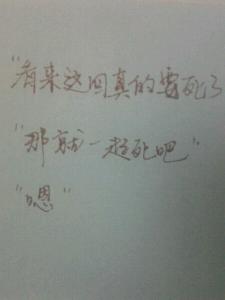 "看来这回真的要死了
"那就一起死吧"
"嗯"